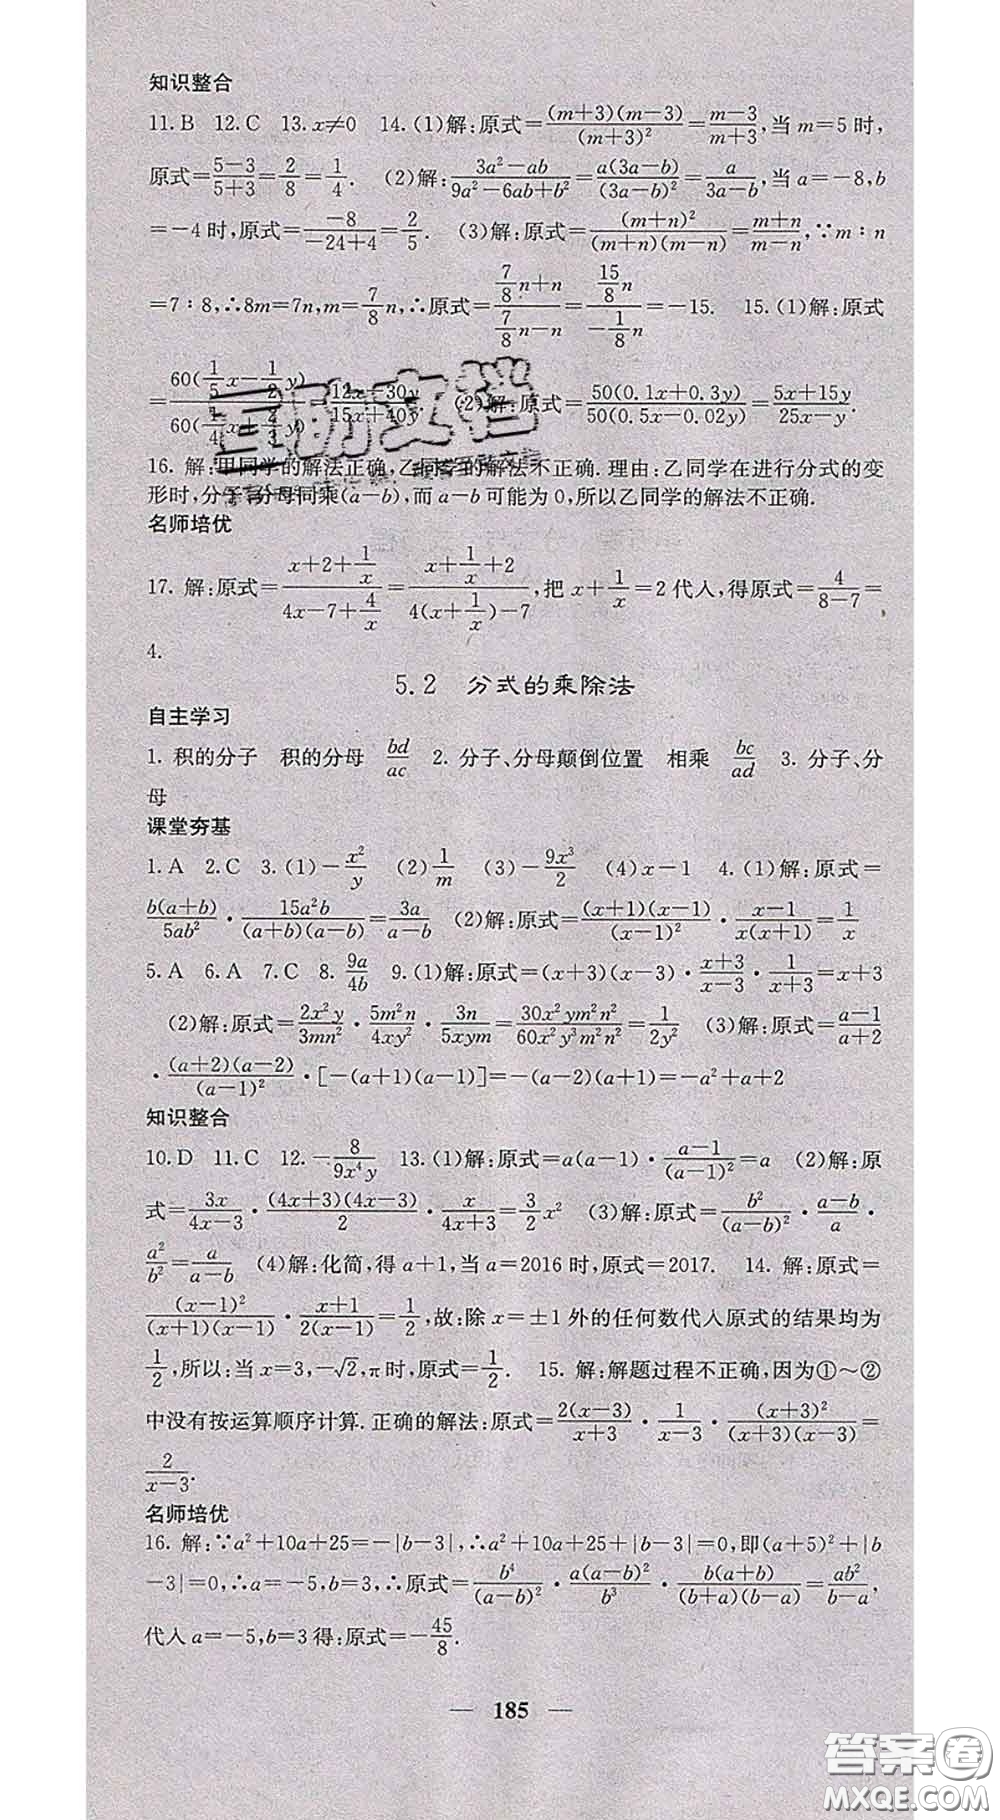 知识整合
11. B 12. C 13. x≠0 14. (1)解:原式=\frac{(m+3)(m-3)}{(m+3)^2}=\frac{m-3}{m+3},当 m=5 时,
原式=\frac{5-3}{5+3}=\frac{2}{8}=\frac{1}{4}. (2)解:\frac{3a^2-ab}{9a^2-6ab+b^2}=\frac{a(3a-b)}{(3a-b)^2}=\frac{a}{3a-b},当 a=-8,b
=-4 时,原式=\frac{-8}{-24+4}=\frac{2}{5}. (3)解:原式=\frac{(m+n)^2}{(m+n)(m-n)}=\frac{m+n}{m-n},∵m∶n
=7∶8,∴8m=7n,m=\frac{7}{8}n,∴原式=\frac{\frac{7}{8}n+n}{\frac{7}{8}n-n}=\frac{\frac{15}{8}n}{-\frac{1}{8}n}=-15. 15. (1)解:原式
=\frac{60(\frac{1}{5}x-\frac{1}{2}y)}{60(\frac{1}{4}x+\frac{2}{3}y)}=\frac{12x-30y}{15x+40y} (2)解:原式=\frac{50(0.1x+0.3y)}{50(0.5x-0.02y)}=\frac{5x+15y}{25x-y}.
16. 解:甲同学的解法正确,乙同学的解法不正确. 理由:乙同学在进行分式的变
形时,分子、分母同乘(a-b),而 a-b 可能为 0,所以乙同学的解法不正确.
名师培优
17. 解:原式=\frac{x+2+\frac{1}{x}}{4x-7+\frac{4}{x}}=\frac{x+\frac{1}{x}+2}{4(x+\frac{1}{x})-7},把 x+\frac{1}{x}=2 代人,得原式=\frac{4}{8-7}=
4.
5.2 分式的乘除法
自主学习
1. 积的分子 积的分母 \frac{bd}{ac} 2. 分子、分母颠倒位置 相乘 \frac{bc}{ad} 3. 分子、分
母
课堂夯基
1. A 2. C 3. (1)-\frac{x^2}{y} (2)\frac{1}{m} (3)-\frac{9x^3}{2} (4)x-1 4. (1)解:原式=
\frac{b(a+b)}{5ab^2}·\frac{15a^2b}{(a+b)(a-b)}=\frac{3a}{a-b} (2)解:原式=\frac{(x+1)(x-1)}{(x-1)^2}·\frac{x-1}{x(x+1)}=\frac{1}{x}
5. A 6. A 7. C 8. \frac{9a}{4b} 9. (1)解:原式=(x+3)(x-3)·\frac{x+3}{x-3}·\frac{1}{x+3}=x+3
(2)解:原式=\frac{2x^2y}{3mn^2}·\frac{5m^2n}{4xy^2}·\frac{3n}{5xym}=\frac{30x^2ym^2n^2}{60x^2y^3m^2n^2}=\frac{1}{2y^2} (3)解:原式=\frac{a-1}{a+2}
·\frac{(a+2)(a-2)}{(a-1)^2}·[-(a+1)(a-1)]=-(a-2)(a+1)=-a^2+a+2
知识整合
10. D 11. C 12. -\frac{8}{9x^4y} 13. (1)解:原式=a(a-1)·\frac{a-1}{(a-1)^2}=a (2)解:原
式=\frac{3x}{4x-3}·\frac{(4x+3)(4x-3)}{2}·\frac{x}{4x+3}=\frac{3}{2}x^2 (3)解:原式=\frac{b^2}{(a-b)^2}·\frac{a-b}{a}·
\frac{a^2}{b^2}=\frac{a}{a-b} (4)解:化简,得 a+1,当 a=2016 时,原式=2017. 14. 解:原式=
\frac{(x-1)^2}{(x+1)(x-1)}·\frac{x+1}{2(x-1)}=\frac{1}{2},故:除 x=±1 外的任何数代人原式的结果均为
\frac{1}{2},所以:当 x=3,-√2,π时,原式=\frac{1}{2}. 15. 解:解题过程不正确,因为①~②
中没有按运算顺序计算. 正确的解法:原式=\frac{2(x-3)}{x+3}·\frac{1}{x-3}·\frac{(x+3)^2}{(x+3)(x-3)}=
\frac{2}{x-3}.
名师培优
16. 解:∵a^2+10a+25=-|b-3|,∴a^2+10a+25+|b-3|=0,即(a+5)^2+|b
-3|=0,∴a=-5,b=3,∴原式=\frac{b^4}{(a-b)^2}·\frac{a(a-b)^2}{b^3}·\frac{b(a+b)}{(b+a)(b-a)}=\frac{ab^2}{b-a},
代人 a=-5,b=3 得:原式=-\frac{45}{8}.
— 185 —
答案卷
MXQE.COM